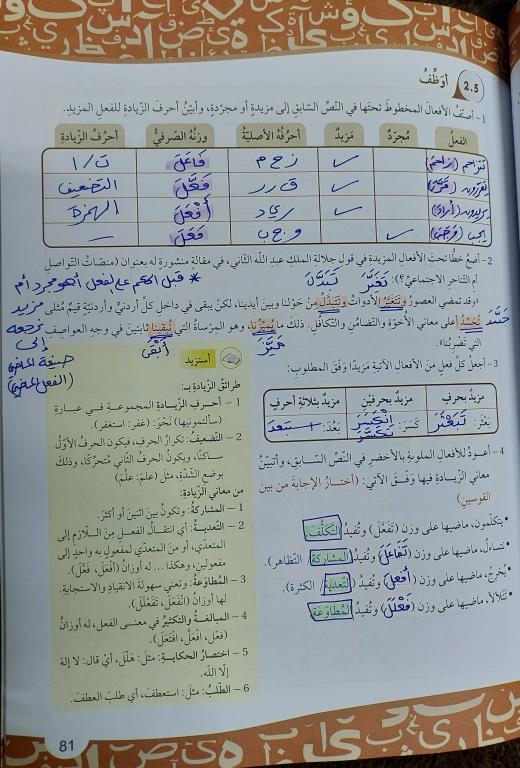 2.5 أوَظِّفُ
1- أصنّفُ الأفعالَ المخطوطَ تحتَها في النّصّ السّابقِ إلى مزيدةٍ أو مجرّدةٍ، وأبيّنُ أحرفَ الزّيادةِ للفعلِ المزيدِ.
الفعلُ مُجرّدٌ مَزيدٌ أحرُفُهُ الأصليّةُ وزنُهُ الصّرفيُّ أحرُفُ الزّيادةِ
تتزاحم (زاحَمَ) ✓ ز ح م فَاعَلَ ت / ا
(قَرَّرَ) ✓ ق ر ر فَعَّلَ التضعيف
يريدون (أرادَ) ✓ أَفْعَلَ الهمزة
يجب ✓ و ج ب فَعَلَ –
2- أضعُ خطًّا تحتَ الأفعالِ المزيدةِ في قولِ جلالةِ الملكِ عبدِ اللهِ الثّاني، في مقالةٍ منشورةٍ له بعنوان (منصّاتُ التّواصلِ
أم التّناحرِ الاجتماعيِّ؟): تَغَيَّرَ تَبَدَّلَ
* قبل الحكم على الفعل أهو مجرد أم مزيد
نرجعه
إلى
صيغة الماضي
(الفعل الماضي)
«وقد تمضي العصورُ وتتغيّرُ الأدواتُ وتتبدّلُ من حَوْلِنا وبينَ أيدينا، لكنْ يبقى في داخلِ كلِّ أردنيٍّ وأردنيّةٍ قِيَمٌ مُثلى
جَسَّدَ
تُجسِّدُ على معاني الأخوّةِ والتّضامنِ والتّكافُلِ. ذلك ما يُميّزُنا، وهو المِرساةُ التي تُبقينا ثابتينَ في وجهِ العواصفِ
التي تضربُنا».
مَيَّزَ أَبْقَى
3- أجعلُ كلَّ فعلٍ منَ الأفعالِ الآتيةِ مَزيدًا وَفْقَ المطلوبِ:
مزيدٌ بحرفٍ مزيدٌ بحرفينِ مزيدٌ بثلاثةِ أحرفٍ
بَعْثَرَ: تَبَعْثَرَ كَسَرَ: اِنْكَسَرَ بَعُدَ: استبعدَ
تَكَسَّرَ
4- أعودُ للأفعالِ الملوّنةِ بالأخضرِ في النّصّ السّابق، وأتبيّنُ
معاني الزّيادةِ فيها وَفْقَ الآتي: (أختارُ الإجابةَ من بينِ
القوسينِ)
• يتكلّمون، ماضيها على وزن (تَفَعَّلَ) وتُفيدُ التكلّف
• نتساءلُ، ماضيها على وزنِ (تَفَاعَلَ) وتُفيدُ (المشاركة / التظاهر).
• يُخرِجُ، ماضيها على وزنِ (أَفْعَلَ) وتُفيدُ (التعدية / الكثرة).
• تتلألأ، ماضيها على وزن وتُفيدُ المُطاوَعة
أستزيد
طرائقُ الزّيادةِ بـ:
1 – أحرفِ الزّيادةِ المجموعةِ في عبارةِ
(سألتمونيها) نَحْوَ: (غفر: استغفر).
2 – التّضعيفُ: تكرارُ الحرفِ، فيكونُ الحرفُ الأوّلُ
ساكنًا، ويكونُ الحرفُ الثّاني مُتحرّكًا، وذلك
بوضعِ الشّدّةِ، مثلَ (علِمَ: علَّمَ)
من معاني الزّيادةِ:
1 – المشاركةُ: وتكونُ بينَ اثنينِ أو أكثرَ.
2 – التّعديةُ: أي انتقالُ الفعلِ منَ اللّازمِ إلى
المتعدّي، أو منَ المتعدّي لمفعولٍ به واحدٍ إلى
مفعولينِ، وهكذا ... له أوزانُ (أَفْعَلَ، فعَّلَ).
3 – المُطاوَعةُ: وتعني سهولةَ الانقيادِ والاستجابةِ.
لها أوزانُ (انْفَعَلَ، تَفَعْلَلَ).
4 – المبالغةُ والتّكثيرُ في معنى الفعلِ، له أوزانُ
(فعّل، افعَلَّ، افتَعَلَ).
5 – اختصارُ الحكايةِ: مثلَ: هَلَّلَ، أيْ قالَ: لا إلهَ
إلّا اللهُ.
6 – الطّلبُ: مثلَ: استعطفَ، أي طلبَ العطفَ.
81